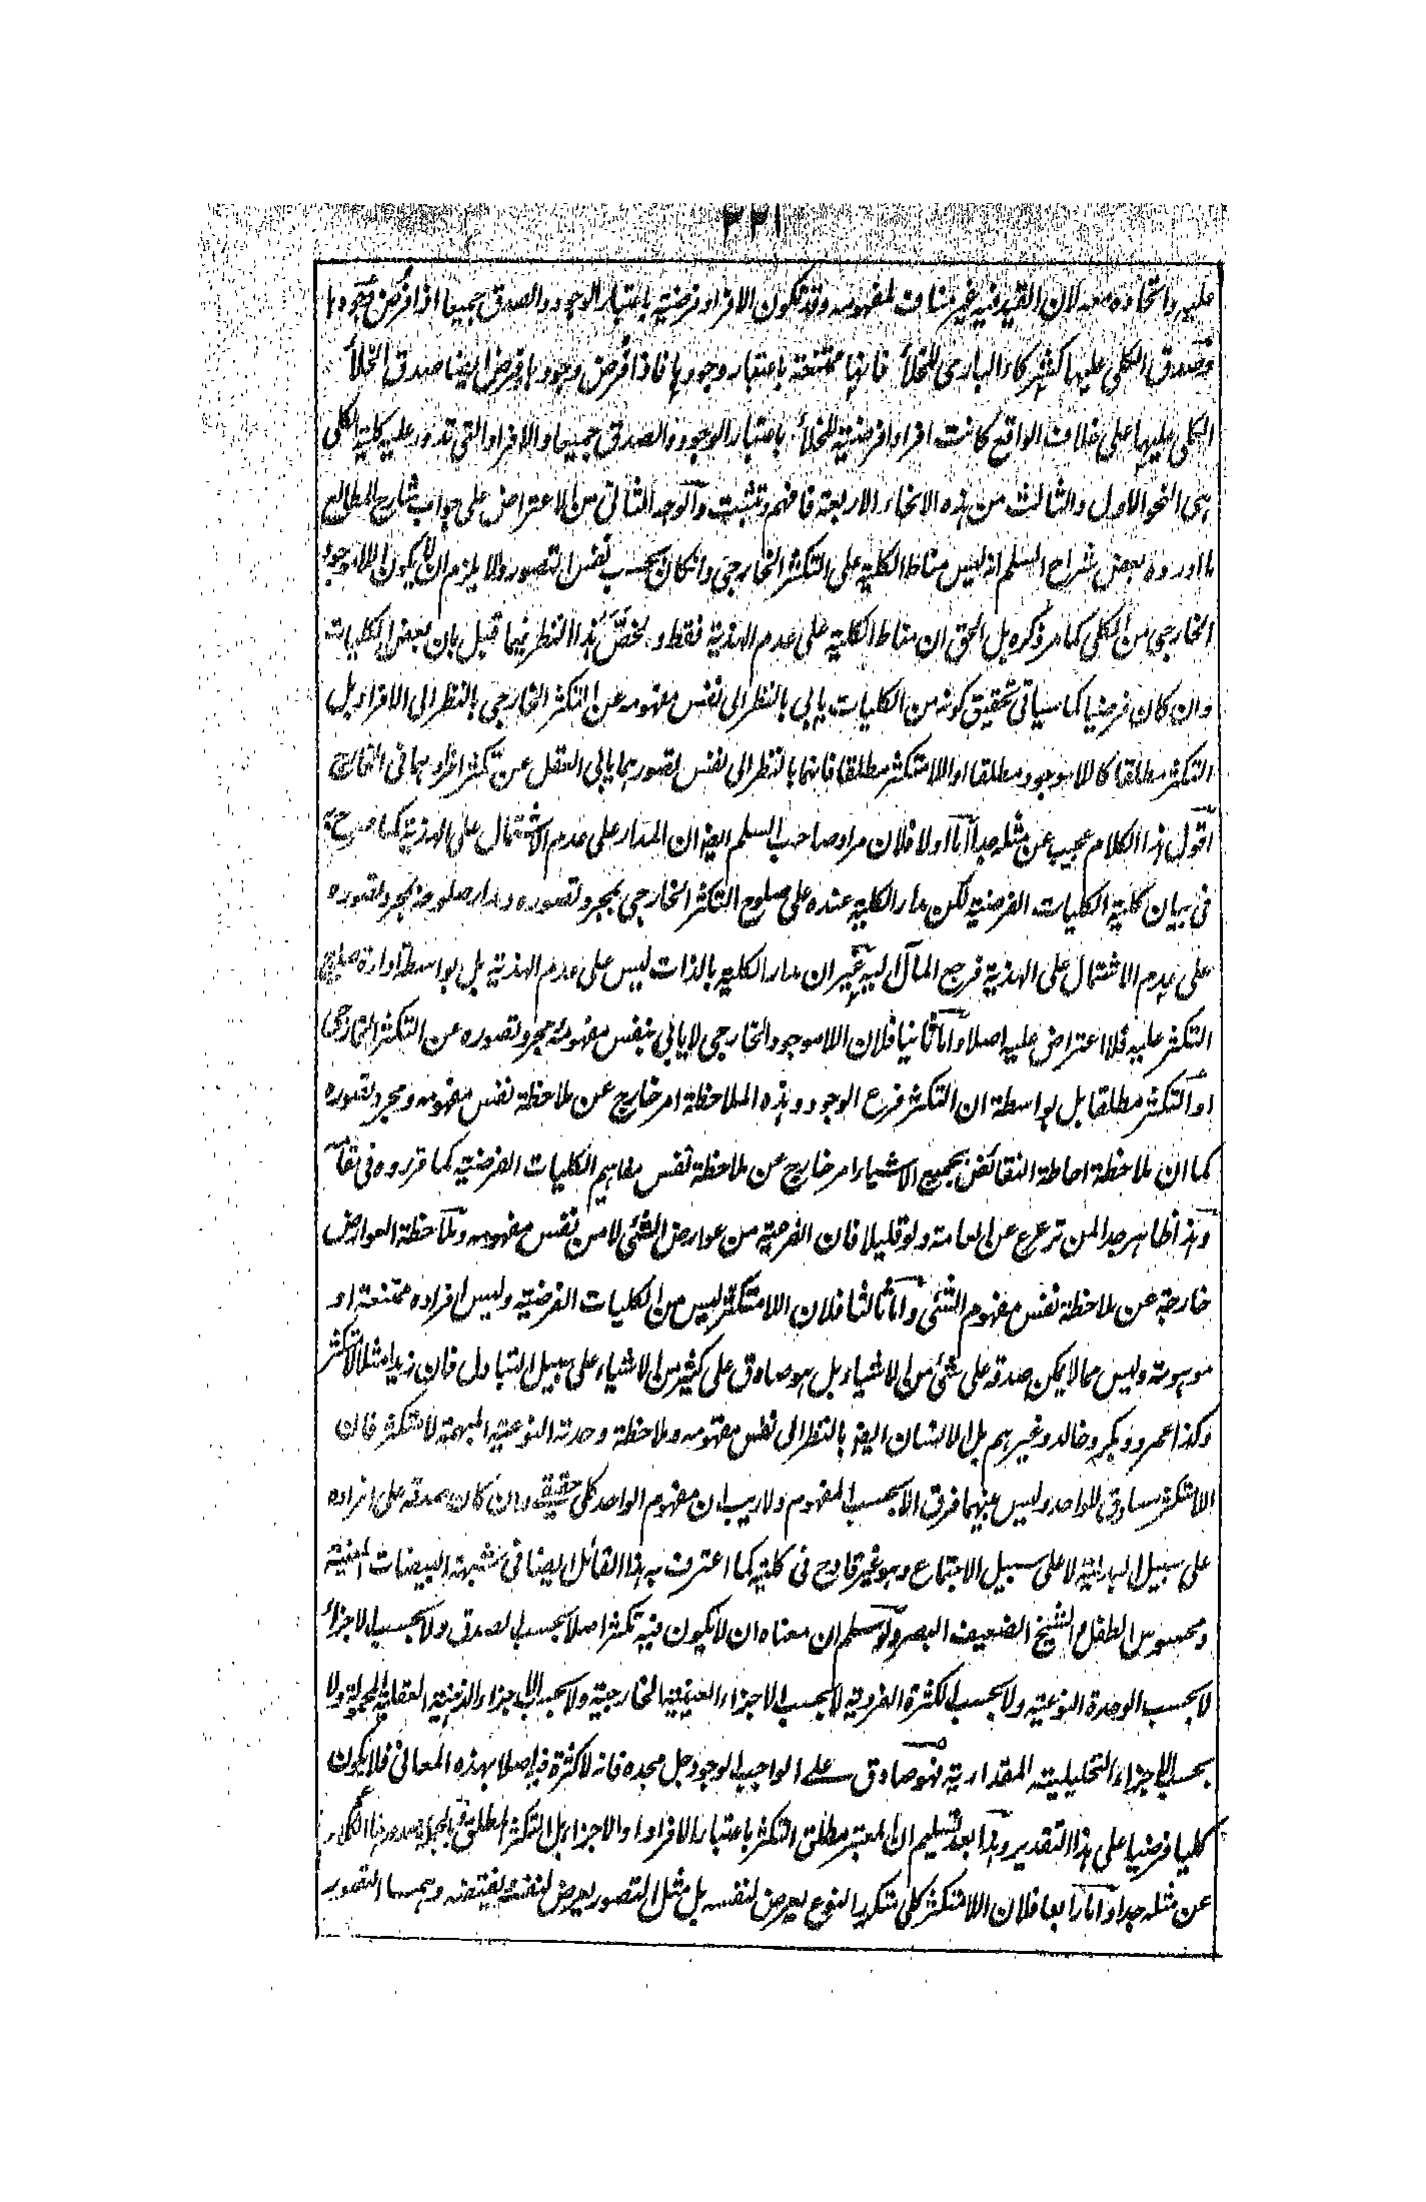 ٢٢١
عليه واتحاده معه لان القيد فيه غير مناف لمفهومه وقد تكون الافراد فرضية باعتبار الوجود والصدق جميعا اذا فرض وجودها
وصدق الكلي عليها كشركاء الباري للخلأ فانها ممتنعة باعتبار وجودها فاذا فرض وجودها وفرض ايضا صدق الخلأ
الكلي عليها على خلاف الواقع كانت افرادا فرضية للخلأ باعتبار الوجود والصدق جميعا والافراد التي تدور عليه كلية الكلي
هي النحو الاول والثالث من هذه الانحاء الاربعة فافهم وتثبت والوجه الثاني من الاعتراض على جواب شارح المطالع
ما اورده بعض شراح السلم انه ليس مناط الكلية على التكثر الخارجي وان كان بحسب نفس التصور ولا يلزم ان لا يكون اللاموجود
الخارجي من الكلي كما مر ذكره بل الحق ان مناط الكلية على عدم الهذية فقط و يخص هذا النظر فيما قيل بان بعض الكليات
وان كان فرضيا كما سياتي تحقيق كونه من الكليات يابى بالنظر الى نفس مفهومه عن التكثر الخارجي بالنظر الى الافراد بل
التكثر مطلقا كاللاموجود مطلقا او اللامتكثر مطلقا فانهما بالنظر الى نفس تصورهما يابى العقل عن تكثر افرادهما في الخارج
اقول هذا الكلام عجيب عن مثله جدا اما اولا فلان مراد صاحب السلم ايضا ان المدار على عدم الاشتمال على الهذية كما صرح به
في بيان كلية الكليات الفرضية لكن مدار الكلية عنده على صلوح التكثر الخارجي بمجرد تصوره ومدار صلوحه بمجرد تصوره
على عدم الاشتمال على الهذية فرجع المآل اليه غير ان مدار الكلية بالذات ليس على عدم الهذية بل بواسطة ادارة صلوح
التكثر عليه فلا اعتراض عليه اصلا واما ثانيا فلان اللاموجود الخارجي لا يابى بنفس مفهومه ومجرد تصوره عن التكثر الخارجي
او التكثر مطلقا بل بواسطة ان التكثر فرع الوجود وهذه الملاحظة امر خارج عن ملاحظة نفس مفهومه ومجرد تصوره
كما ان ملاحظة احاطة النقائض بجميع الاشياء امر خارج عن ملاحظة نفس مفاهيم الكليات الفرضية كما قرروه في مقامه
وهذا ظاهر جدا لمن ترعرع عن العامة ولو قليلا فان الفرعية من عوارض الشئ لا من نفس مفهومه وملاحظة العوارض
خارجة عن ملاحظة نفس مفهوم الشئ واما ثالثا فلان اللامتكثر ليس من الكليات الفرضية وليس افراده ممتنعة او
موهومة وليس مما لا يمكن صدقه على شئ من الاشياء بل هو صادق على كثير من الاشياء على سبيل التبادل فان زيدا مثلا لامتكثر
وكذا عمرو وبكر وخالد وغيرهم بل الانسان ايضا بالنظر الى نفس مفهومه وملاحظة وحدته النوعية المبهمة لامتكثر فان
اللامتكثر مساوق للواحد وليس بينهما فرق الا بحسب المفهوم ولا ريب ان مفهوم الواحد كلي حقيقي وان كان صدقه على افراده
على سبيل البدلية لا على سبيل الاجتماع وهو غير قادح في كليته كما اعترف به هذا القائل ايضا في شبهة البيضات المعينة
ومحسوس الطفل والشيخ الضعيف البصر ولو سلم ان معناه ان لا يكون فيه تكثر اصلا بحسب الصدق ولا بحسب الاجزاء
لا بحسب الوحدة النوعية ولا بحسب الكثرة الفردية لا بحسب الاجزاء العينية الخارجية ولا بحسب الاجزاء الذهنية العقلية المحمولة ولا
بحسب الاجزاء التحليلية المقدارية فهو صادق على الواجب الوجود جل مجده فانه لا كثرة فيه اصلا بهذه المعاني فلا يكون
كليا فرضيا على هذا التقدير وهذا بعد تسليم ان المعتبر مطلق التكثر باعتبار الافراد او الاجزاء بل التكثر المطلق وبالجملة صدور هذا الكلام
عن مثله جدا واما رابعا فلان اللامتكثر كلي متكرر النوع يعرض لنفسه بل مثل التصور يعرض لنفسه ونقيضه وهما التصور